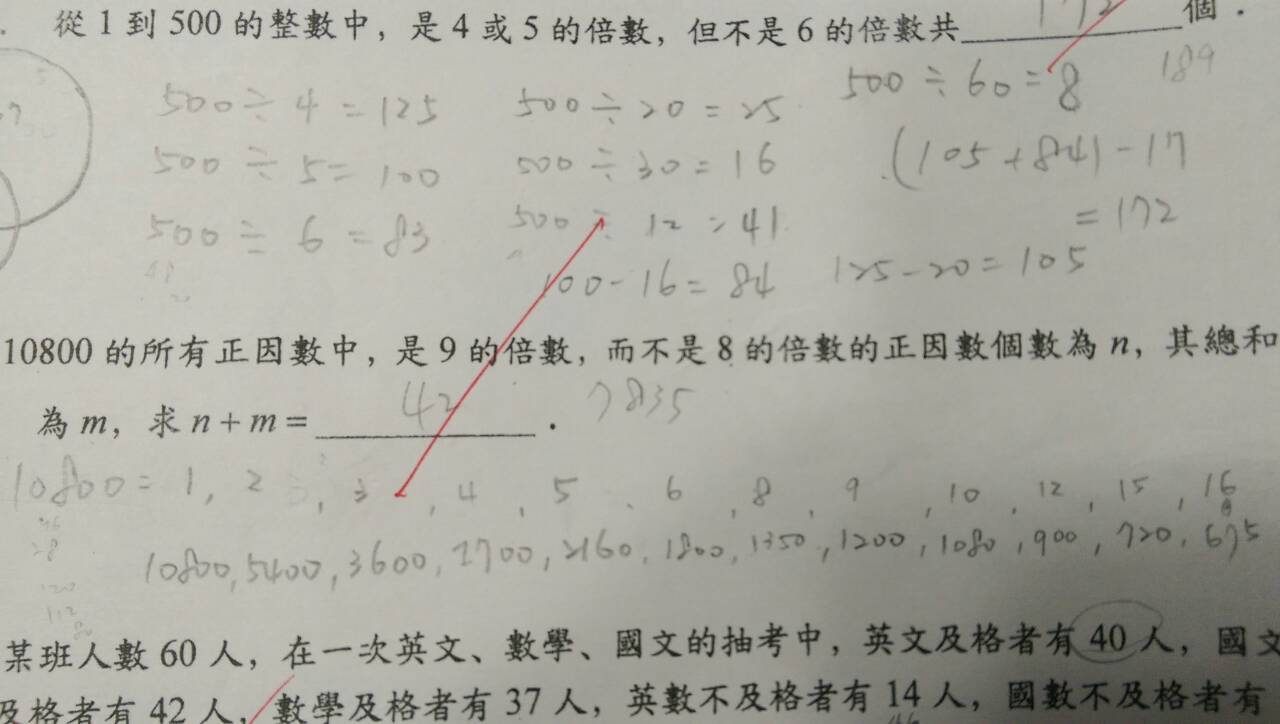 . 從 1 到 500 的整數中，是 4 或 5 的倍數，但不是 6 的倍數共 172 個．
500 ÷ 4 = 125 500 ÷ 20 = 25 500 ÷ 60 = 8 189
500 ÷ 5 = 100 500 ÷ 30 = 16 (105 + 84) - 17
500 ÷ 6 = 83 500 ÷ 12 = 41 = 172
100 - 16 = 84 125 - 20 = 105
10800 的所有正因數中，是 9 的倍數，而不是 8 的倍數的正因數個數為 n，其總和
為 m，求 n + m = 42 ． 7835
10800 = 1, 2, 3, 4, 5, 6, 8, 9, 10, 12, 15, 16
10800, 5400, 3600, 2700, 2160, 1800, 1350, 1200, 1080, 900, 720, 675
某班人數 60 人，在一次英文、數學、國文的抽考中，英文及格者有 40 人，國文
及格者有 42 人，數學及格者有 37 人，英數不及格者有 14 人，國數不及格者有